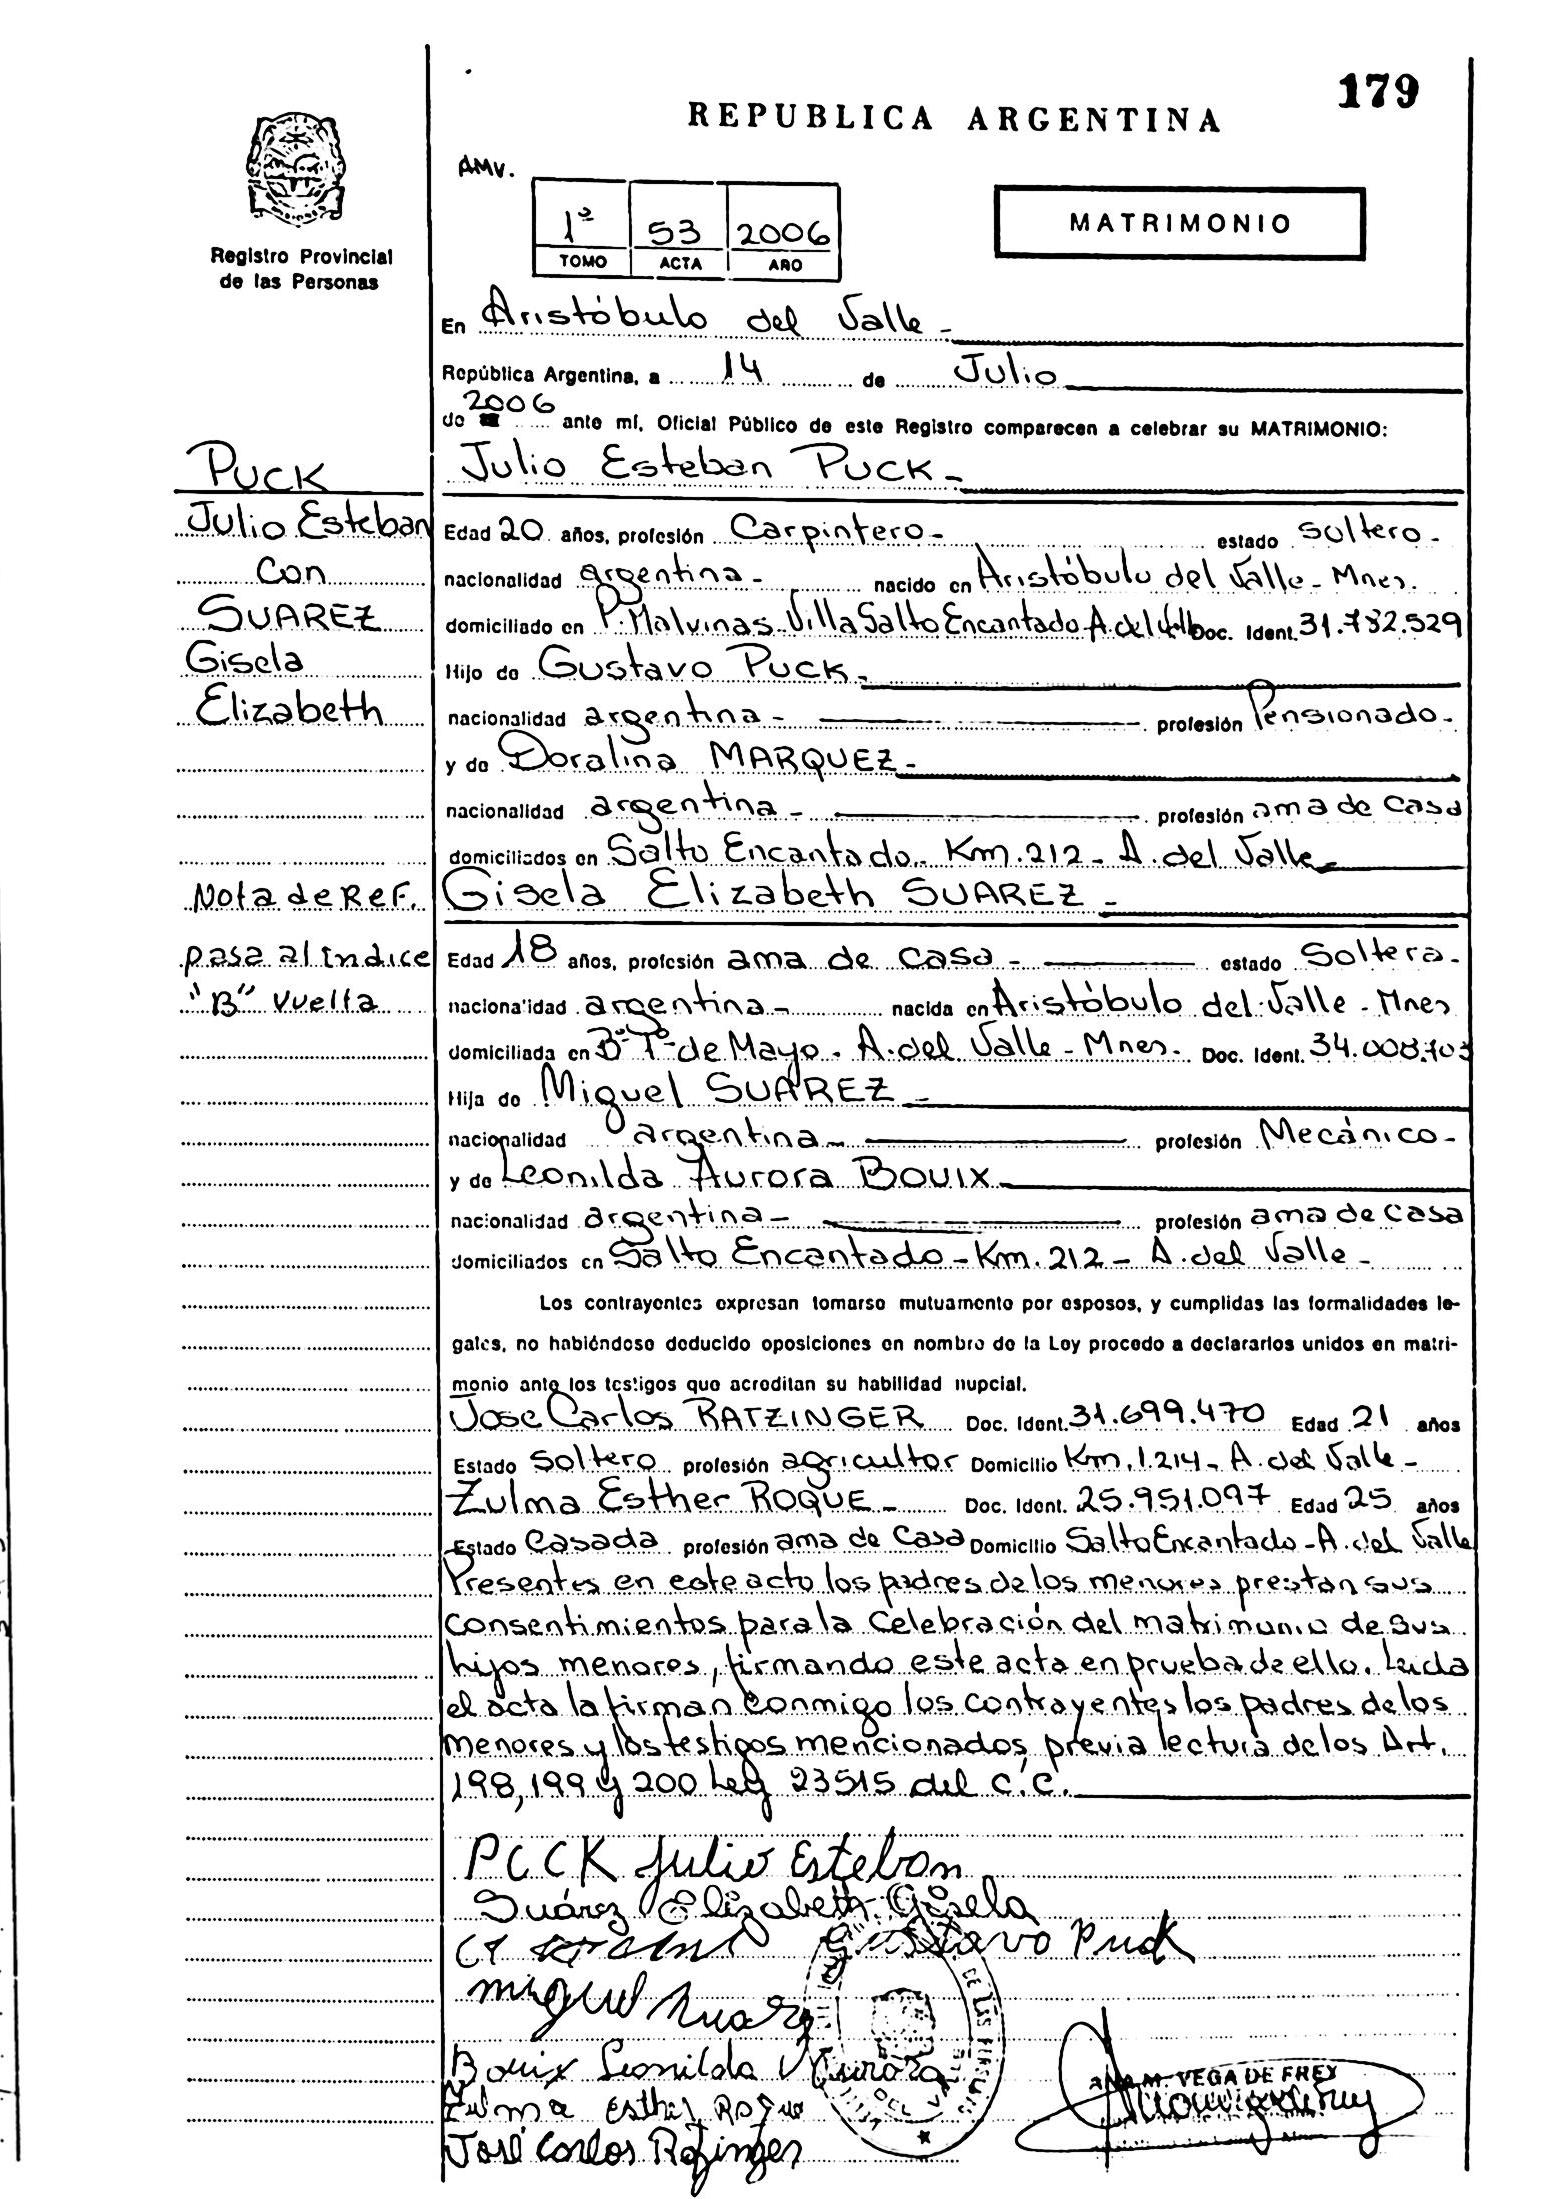 179
REPUBLICA ARGENTINA
AMV.
1º 53 2006
TOMO ACTA AÑO
MATRIMONIO
Registro Provincial
de las Personas
En Aristóbulo del Valle -
República Argentina, a 14 de Julio
de 2006 ante mí, Oficial Público de este Registro comparecen a celebrar su MATRIMONIO:
PUCK
Julio Esteban
con
SUAREZ
Gisela
Elizabeth
Nota de Ref.
pasa al índice
"B" vuelta
Julio Esteban PUCK -
Edad 20 años, profesión Carpintero - estado Soltero -
nacionalidad argentina - nacido en Aristóbulo del Valle - Mnes.
domiciliado en P. Malvinas Villa Salto Encantado A. del Valle Doc. Ident. 31.782.529
Hijo de Gustavo PUCK -
nacionalidad argentina - profesión Pensionado -
y de Doralina MARQUEZ -
nacionalidad argentina - profesión ama de casa
domiciliados en Salto Encantado - Km. 212 - A. del Valle -
Gisela Elizabeth SUAREZ -
Edad 18 años, profesión ama de casa - estado Soltera -
nacionalidad argentina - nacida en Aristóbulo del Valle - Mnes
domiciliada en Bº 1º de Mayo - A. del Valle - Mnes. Doc. Ident. 34.008.703
Hija de Miguel SUAREZ -
nacionalidad argentina - profesión Mecánico -
y de Leonilda Aurora BOUIX
nacionalidad argentina - profesión ama de casa
domiciliados en Salto Encantado - Km. 212 - A. del Valle -
Los contrayentes expresan tomarse mutuamente por esposos, y cumplidas las formalidades le-
gales, no habiéndose deducido oposiciones en nombre de la Ley procedo a declararlos unidos en matri-
monio ante los testigos que acreditan su habilidad nupcial.
Jose Carlos RATZINGER Doc. Ident. 31.699.470 Edad 21 años
Estado Soltero profesión agricultor Domicilio Km. 1.214 - A. del Valle -
Zulma Esther ROQUE - Doc. Ident. 25.951.097 Edad 25 años
Estado Casada profesión ama de Casa Domicilio Salto Encantado - A. del Valle
Presentes en este acto los padres de los menores prestan sus
consentimientos para la celebración del matrimonio de sus
hijos menores, firmando este acta en prueba de ello. Leida
el acta la firman conmigo los contrayentes los padres de los
menores y los testigos mencionados, previa lectura de los Art.
198, 199 y 200 Ley 23515 del C.C.
PUCK Julio Esteban
Suárez Elizabeth Gisela
Gustavo Puck
Miguel Suarez
Bouix Leonilda Aurora
ANA M. VEGA DE FREY
Zulma Esther Roque
José Carlos Razinger